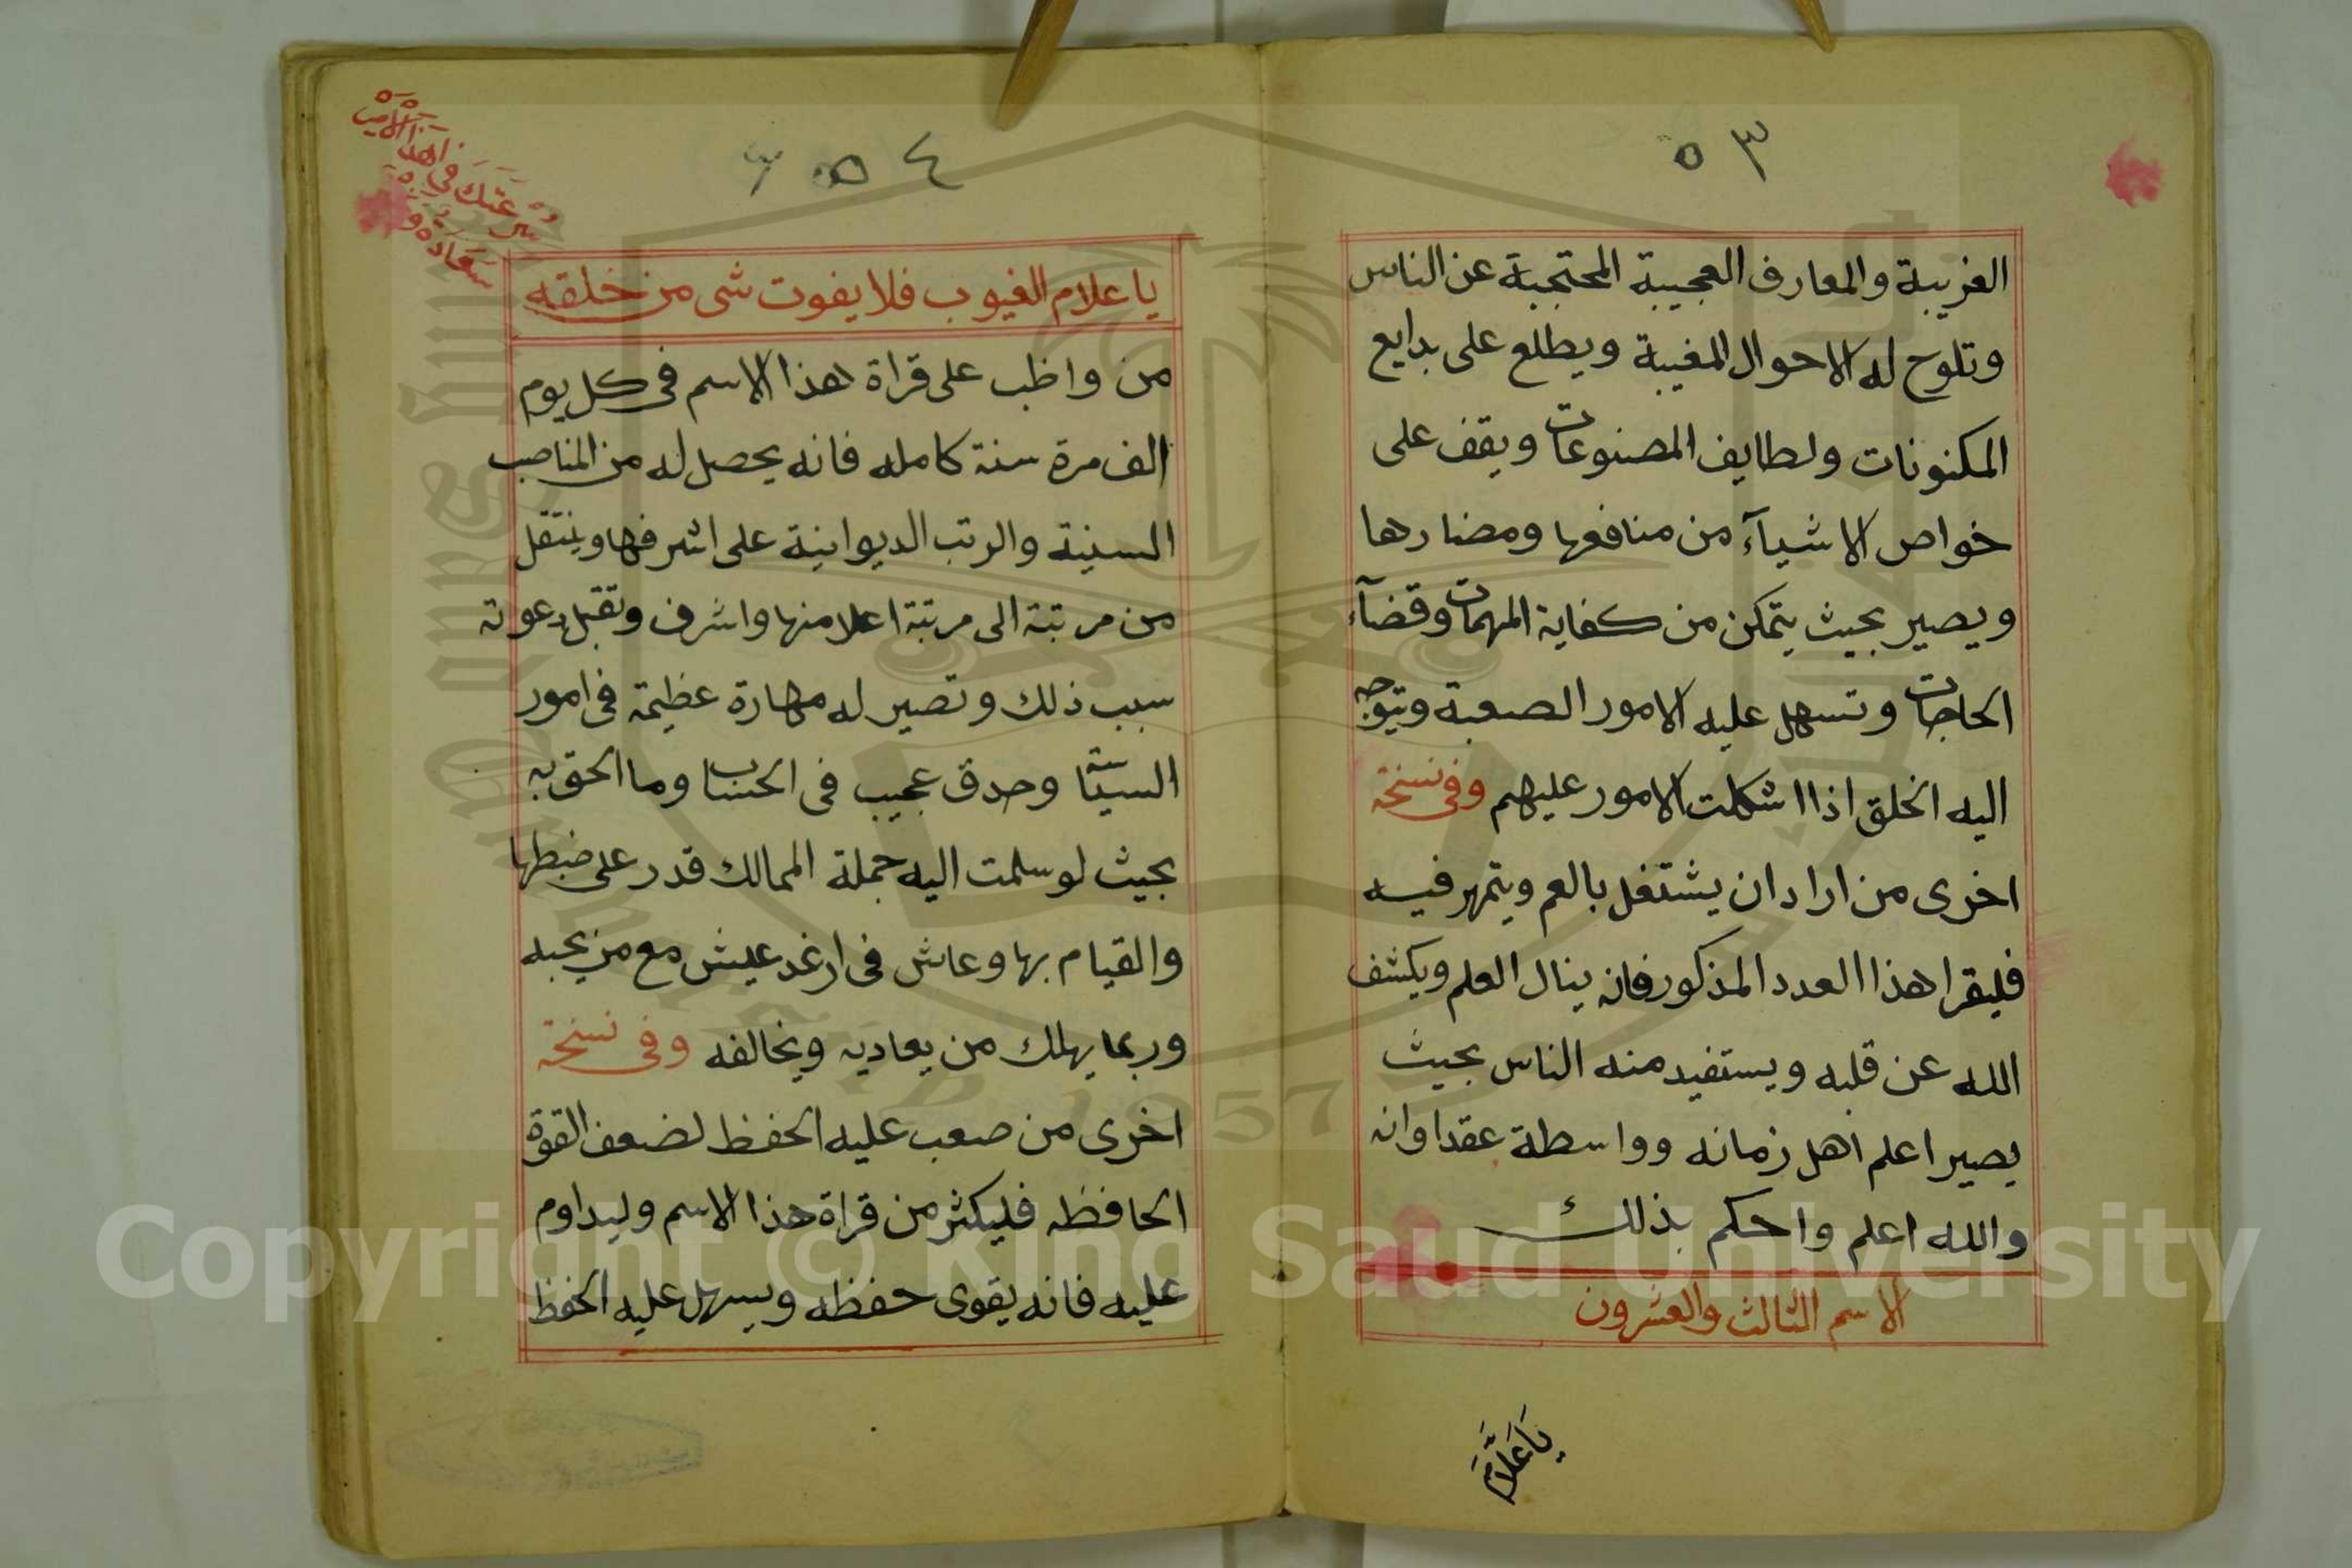 ٥٣
الغريبة والمعارف العجيبة المحتجبة عن الناس
وتلوح له الاحوال المغيبة ويطلع على بدايع
المكنونات ولطايف المصنوعات ويقف على
خواص الاشيآء من منافعها ومضارها
ويصير بحيث يتمكن من كفاية المهمات وقضآء
الحاجات وتسهل عليه الامور الصعبة ويتوجه
اليه الخلق اذا اشكلت الامور عليهم وفى نسخة
اخرى من اراد ان يشتغل بالعم ويتمهر فيه
فليقرا هذا العدد المذكور فانه ينال العلم ويكشف
الله عن قلبه ويستفيد منه الناس بحيث
يصير اعلم اهل زمانه وواسطة عقد اوانه
والله اعلم واحكم بذلك
الاسم الثالث والعشرون
يَا عَلَّامَ
٥٤
يا علام الغيوب فلا يفوت شى من خلقه
من واظب على قراة هذا الاسم فى كل يوم
الف مرة سنة كامله فانه يحصل له من المناصب
السنية والرتب الديوانية على اشرفها وينتقل
من مرتبة الى مرتبة اعلا منها واشرف وتقبل دعوته
سبب ذلك وتصير له مهارة عظيمة فى امور
وحدق عجيب فى الحساب وما الحق به
بحيث لو سلمت اليه جملة الممالك قدر على ضبطها
والقيام بها وعاش فى ارغد عيش مع من يحبه
وربما يهلك من يعاديه ويخالفه وفى نسخة
اخرى من صعب عليه الحفظ لضعف القوة
الحافظه فليكثر من قراة هذا الاسم وليداوم
عليه فانه يقوى حفظه ويسهل عليه الحفظ
Copyright © King Saud University
1957